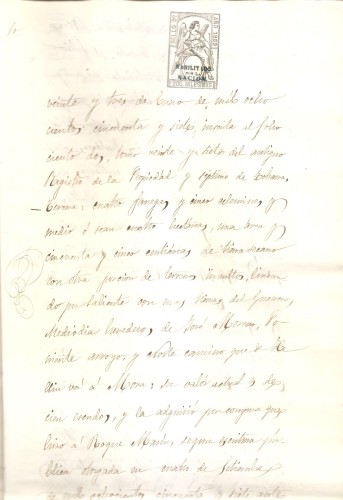 SELLO 9º
AÑO 1869
HABILITADO
POR LA
NACION
veinte y tres de Enero de mil ocho
cientos cincuenta y siete, inscrita al folio
ciento dos, tomo veinte y siete del antiguo
Registro de la Propiedad y séptimo de
cuatro fanegas y cinco celemines, y
medio ó sean cuatro hectáreas, una area y
cincuenta y cinco centiáreas de tierra secano
con otra porcion de terreno inculto, linda
do por Saliente con tierras del
Mediodia herederos de José Po
niente arroyo y Norte camino que de
vá á Mora: su valor es de
cien escudos, y la adquirió por compra que
hizo á Roque segun escritura pú
blica otorgada en cuatro de Setiembre
de mil ochocientos cincuenta y siete ante